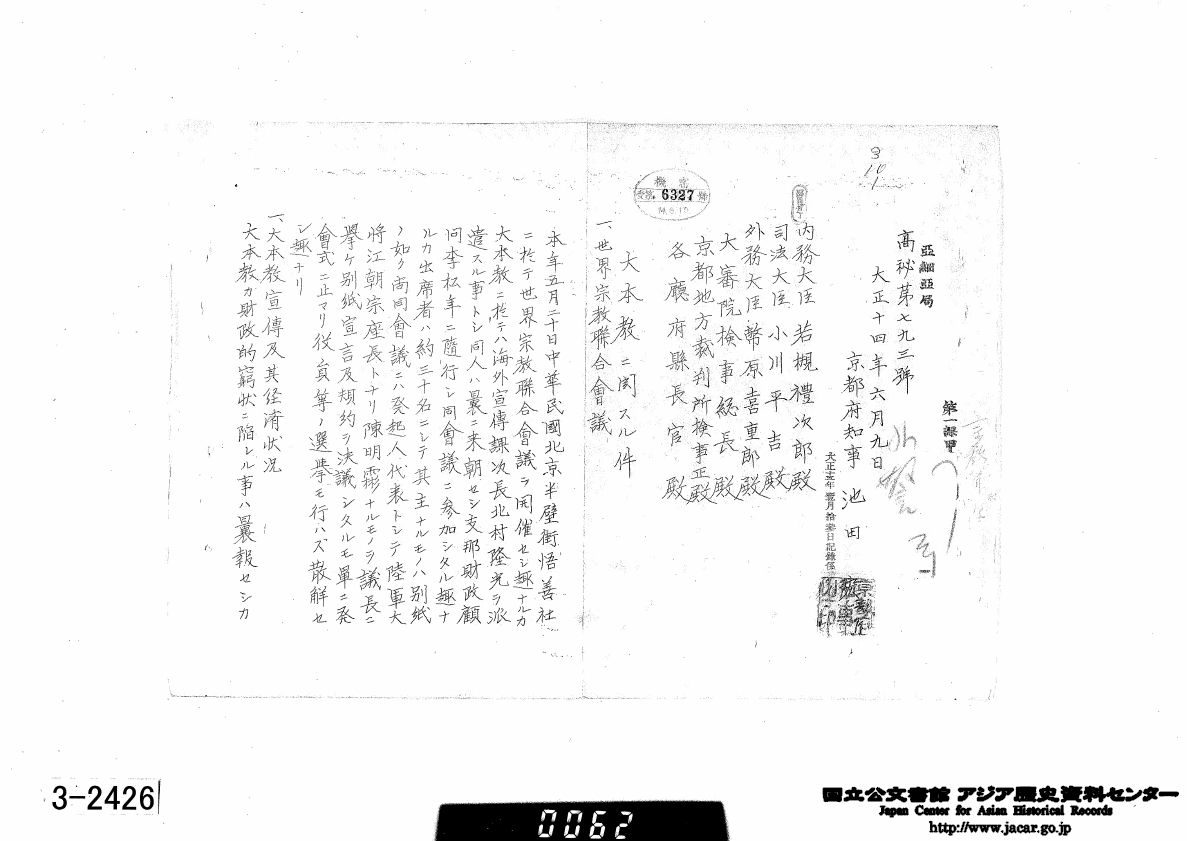 3
10
1
亞細亞局
第一課
高秘第七九三號
大正十四年六月九日
京都府知事 池田
大正十四年 月拾 日記錄係
内務大臣 若槻禮次郎殿
司法大臣 小川平吉殿
外務大臣幣原喜重郎殿
大審院檢事總長殿
京都地方裁判所檢事正殿
各廳府縣長官殿
機密
受第 6327 號
14.6.15
大本教ニ関スル件
一、世界宗教聯合會議
本年五月二十日中華民國北京半壁街悟善社
ニ於テ世界宗教聯合會議ヲ開催セシ趣ナルカ
大本教ニ於テハ海外宣傳課次長北村隆光ヲ派
遣スル事トシ同人ハ曩ニ来朝セシ支那財政顧
問李松年ニ隨行シ同會議ニ参加シタル趣ナ
ルカ出席者ハ約三十名ニシテ其主ナルモノハ別紙
ノ如ク尚同會議ニハ発起人代表トシテ陸軍大
将江朝宗座長トナリ陳明霖ナルモノヲ議長ニ
擧ケ別紙宣言及規約ヲ決議シタルモ單ニ発
會式ニ止マリ役員等ノ選挙モ行ハズ散解セ
シ趣ナリ
一、大本教宣傳及其経済状况
大本教カ財政的窮状ニ陥レル事ハ曩報セシカ
3-2426
0062
国立公文書館 アジア歴史資料センター
Japan Center for Asian Historical Records
http://www.jacar.go.jp